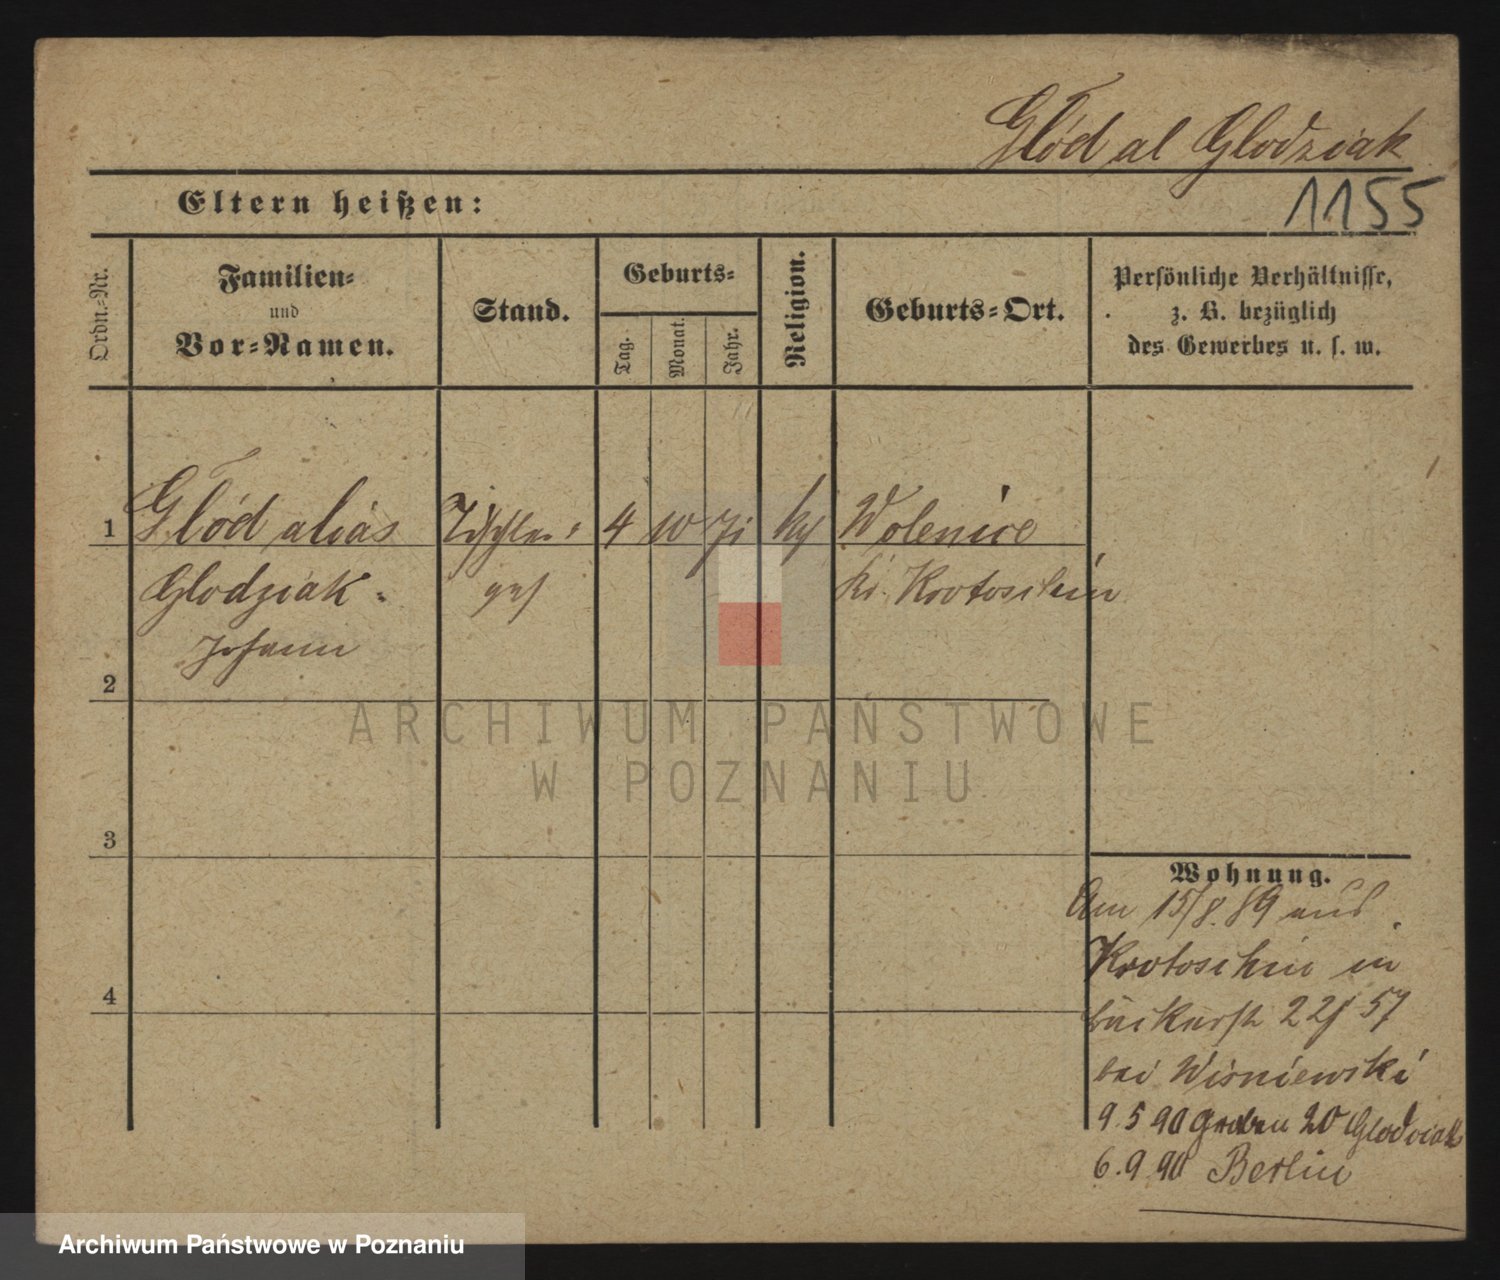 Głód al Glodziak
1155
Eltern heißen:
Ordn.-Nr.
Familien-
und
Vor-Namen.
Stand.
Geburts-
Tag.
Monat.
Jahr.
Religion.
Geburts-Ort.
Persönliche Verhältnisse,
z. B. bezüglich
des Gewerbes u. s. w.
1 Głód alias Tischler- 4 10 71 kg Wolenice
Glodziak- ges Kr. Krotoschin
Johann
2
ARCHIWUM PAŃSTWOWE
W POZNANIU
3
4
Wohnung.
Am 15/8.89 aus
Krotoschin in
Bäckerstr 22/57
bei Wisniewski
9.5 90 Graben 20 Glodziak
6.9 90 Berlin
Archiwum Państwowe w Poznaniu